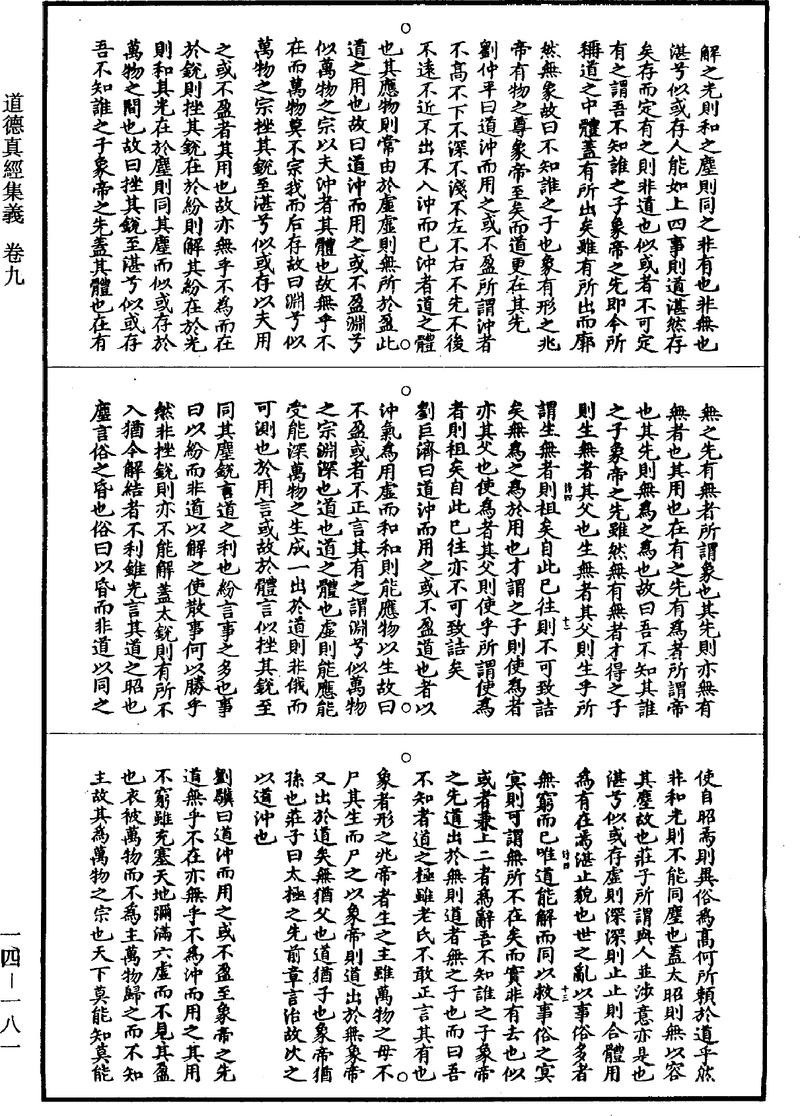 道德真經集義 卷九
一四—一八一
解之光則和之塵則同之非有也非無也
湛兮似或存人能如上四事則道湛然存
矣存而定有之則非道也似或者不可定
有之謂吾不知誰之子象帝之先即今所
稱道之中體蓋有所出矣雖有所出而廓
然無象故曰不知誰之子也象有形之兆
帝有物之尊象帝至矣而道更在其先
劉仲平曰道沖而用之或不盈所謂沖者
不高不下不深不淺不左不右不先不後
不遠不近不出不入沖而已沖者道之體
也其應物則常由於虛虛則無所於盈此
道之用也故曰道沖而用之或不盈淵兮
似萬物之宗以夫沖者其體也故無乎不
在而萬物莫不宗我而后存故曰淵兮似
萬物之宗挫其銳至湛兮似或存以夫用
之或不盈者其用也故亦無乎不為而在
於銳則挫其銳在於紛則解其紛在於光
則和其光在於塵則同其塵而似或存於
萬物之間也故曰挫其銳至湛兮似或存
吾不知誰之子象帝之先蓋其體也在有
無之先有無者所謂象也其先則亦無有
無者也其用也在有之先有為者所謂帝
也其先則無為之為也故曰吾不知其誰
之子象帝之先雖然無有無者才得之子
則生無者其父也生無者其父則生乎所
謂生無者則祖矣自此已往則不可致詰
矣無為之為於用也才謂之子則使為者
亦其父也使為者其父則使乎所謂使為
者則祖矣自此已往亦不可致詰矣
劉巨濟曰道沖而用之或不盈道也者以
沖氣為用虛而和和則能應物以生故曰
不盈或者不正言其有之謂淵兮似萬物
之宗淵深也道也道之體也虛則能應能
受能深萬物之生成一出於道則非俄而
可測也於用言或故於體言似挫其銳至
同其塵銳言道之利也紛言事之多也事
曰以紛而非道以解之使散事何以勝乎
然非挫銳則亦不能解蓋太銳則有所不
入猶令解結者不利錐光言其道之昭也
塵言俗之昏也俗曰以昏而非道以同之
使自昭焉則異俗為高何所賴於道乎然
非和光則不能同塵也蓋太昭則無以容
其塵故也莊子所謂與人並涉意亦是也
湛兮似或存虛則深深則止止則合體用
為有在焉湛止貌也世之亂以事俗多者
無窮而已唯道能解而同以救事俗之冥
冥則可謂無所不在矣而實非有去也似
或者兼上二者為辭吾不知誰之子象帝
之先道出於無則道者無之子也而曰吾
不知者道之極雖老氏不敢正言其有也
象者形之兆帝者生之主雖萬物之母不
尸其生而尸之以象帝則道出於無象帝
又出於道矣無猶父也道猶子也象帝猶
孫也莊子曰太極之先前章言治故次之
以道沖也
劉驥曰道沖而用之或不盈至象帝之先
道無乎不在亦無乎不為沖而用之其用
不窮雖充塞天地彌滿六虛而不見其盈
也衣被萬物而不為主萬物歸之而不知
主故其為萬物之宗也天下莫能知莫能